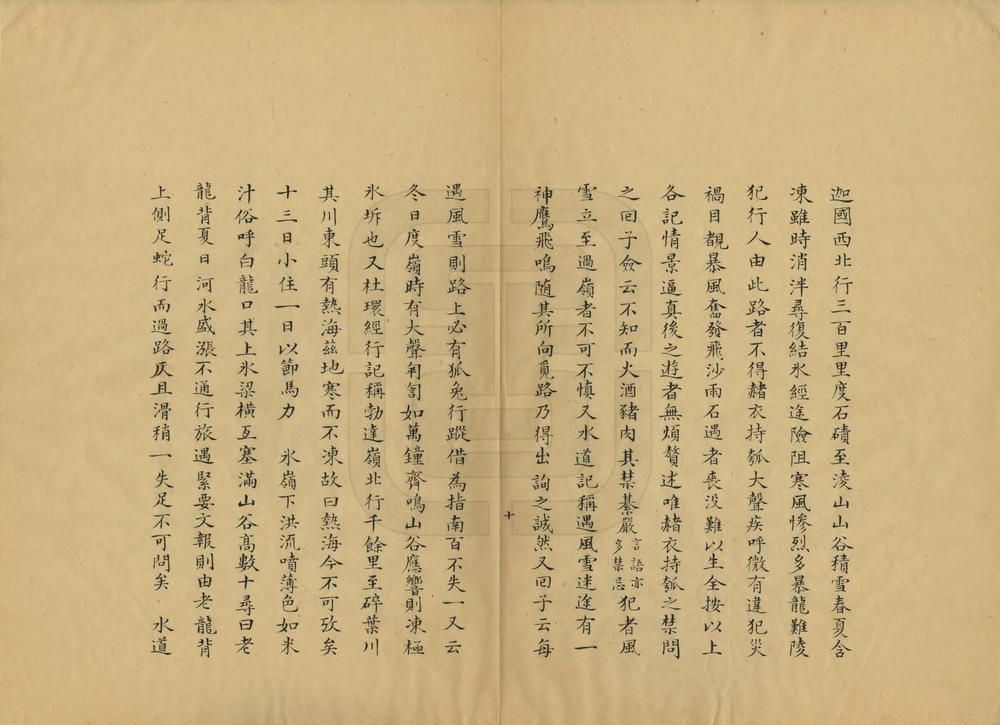 迦國西北行三百里里度石磧至淩山山谷積雪春夏含
凍雖時消泮尋復結氷經途險阻寒風慘烈多暴龍難陵
犯行人由此路者不得赭衣持瓠大聲疾呼微有違犯災
禍目覩暴風奮發飛沙雨石遇者喪没難以生全按以上
各記情景逼真後之遊者無煩贅述唯赭衣持瓠之禁問
之回子僉云不知而火酒豬肉其禁綦嚴言語亦多禁忌犯者風
雪立至過嶺者不可不慎又水道記稱遇風雪迷途有一
神鷹飛鳴随其所向覓路乃得出詢之誠然又回子云每
十
遇風雪則路上必有狐兔行蹤借為指南百不失一又云
冬日度嶺時有大聲訇訇如萬鐘齊鳴山谷應響則凍極
氷坼也又杜環經行記稱勃達嶺北行千餘里至碎葉川
其川東頭有熱海兹地寒而不凍故曰熱海今不可攷矣
十三日小住一日以節馬力　氷嶺下洪流噴薄色如米
汁俗呼白龍口其上氷梁橫亙塞滿山谷高數十尋曰老
龍背夏日河水盛漲不通行旅遇緊要文報則由老龍背
上側足蛇行而過路仄且滑稍一失足不可問矣　水道